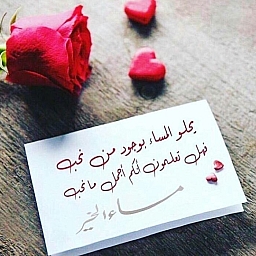 يحلو المساء بوجود من نحب
فهل تعلمون أنكم أجمل ما نحب
مساء الخير